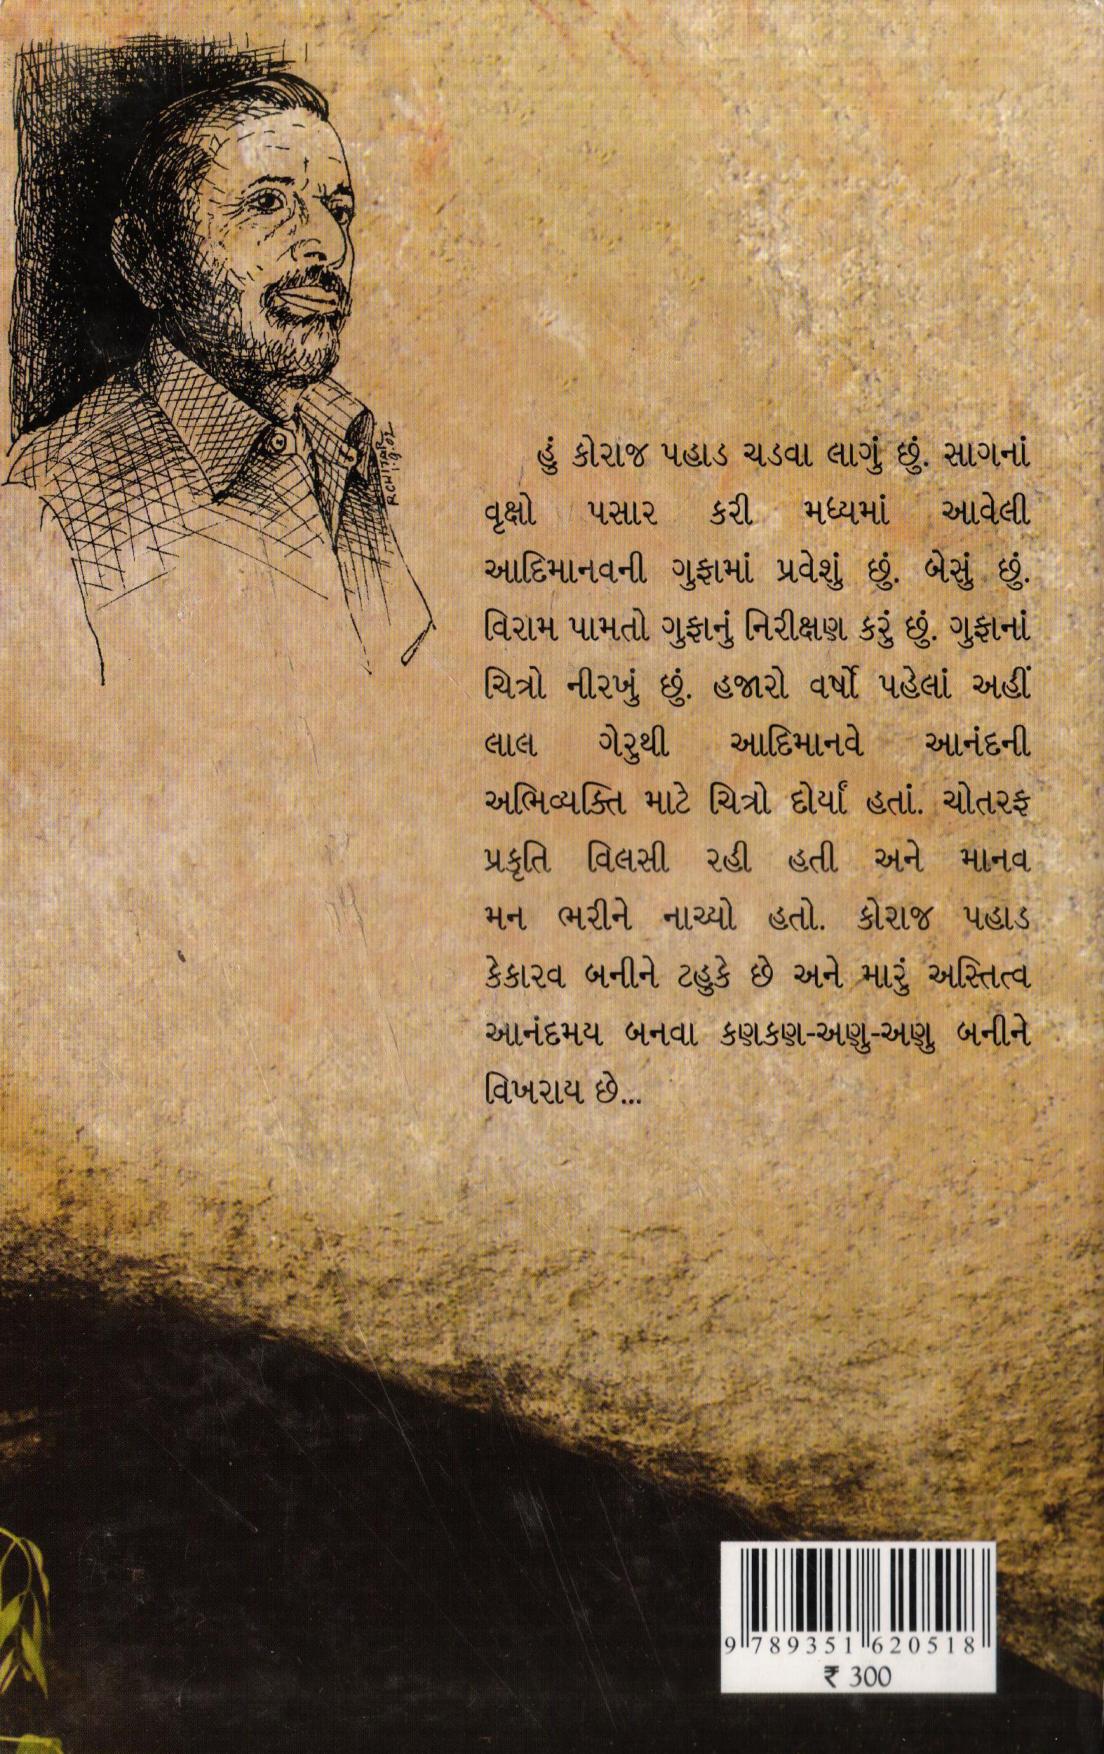 હું કોરાજ પહાડ ચડવા લાગું છું. સાગનાં
વૃક્ષો પસાર કરી મધ્યમાં આવેલી
આદિમાનવની ગુફામાં પ્રવેશું છું. બેસું છું.
વિરામ પામતો ગુફાનું નિરીક્ષણ કરું છું. ગુફાનાં
ચિત્રો નીરખું છું. હજારો વર્ષો પહેલાં અહીં
લાલ ગેરુથી આદિમાનવે આનંદની
અભિવ્યક્તિ માટે ચિત્રો દોર્યાં હતાં. ચોતરફ
પ્રકૃતિ વિલસી રહી હતી અને માનવ
મન ભરીને નાચ્યો હતો. કોરાજ પહાડ
કેકારવ બનીને ટહુકે છે અને મારું અસ્તિત્વ
આનંદમય બનવા કણકણ-અણુ-અણુ બનીને
વિખરાય છે...
9 789351 620518
₹ 300